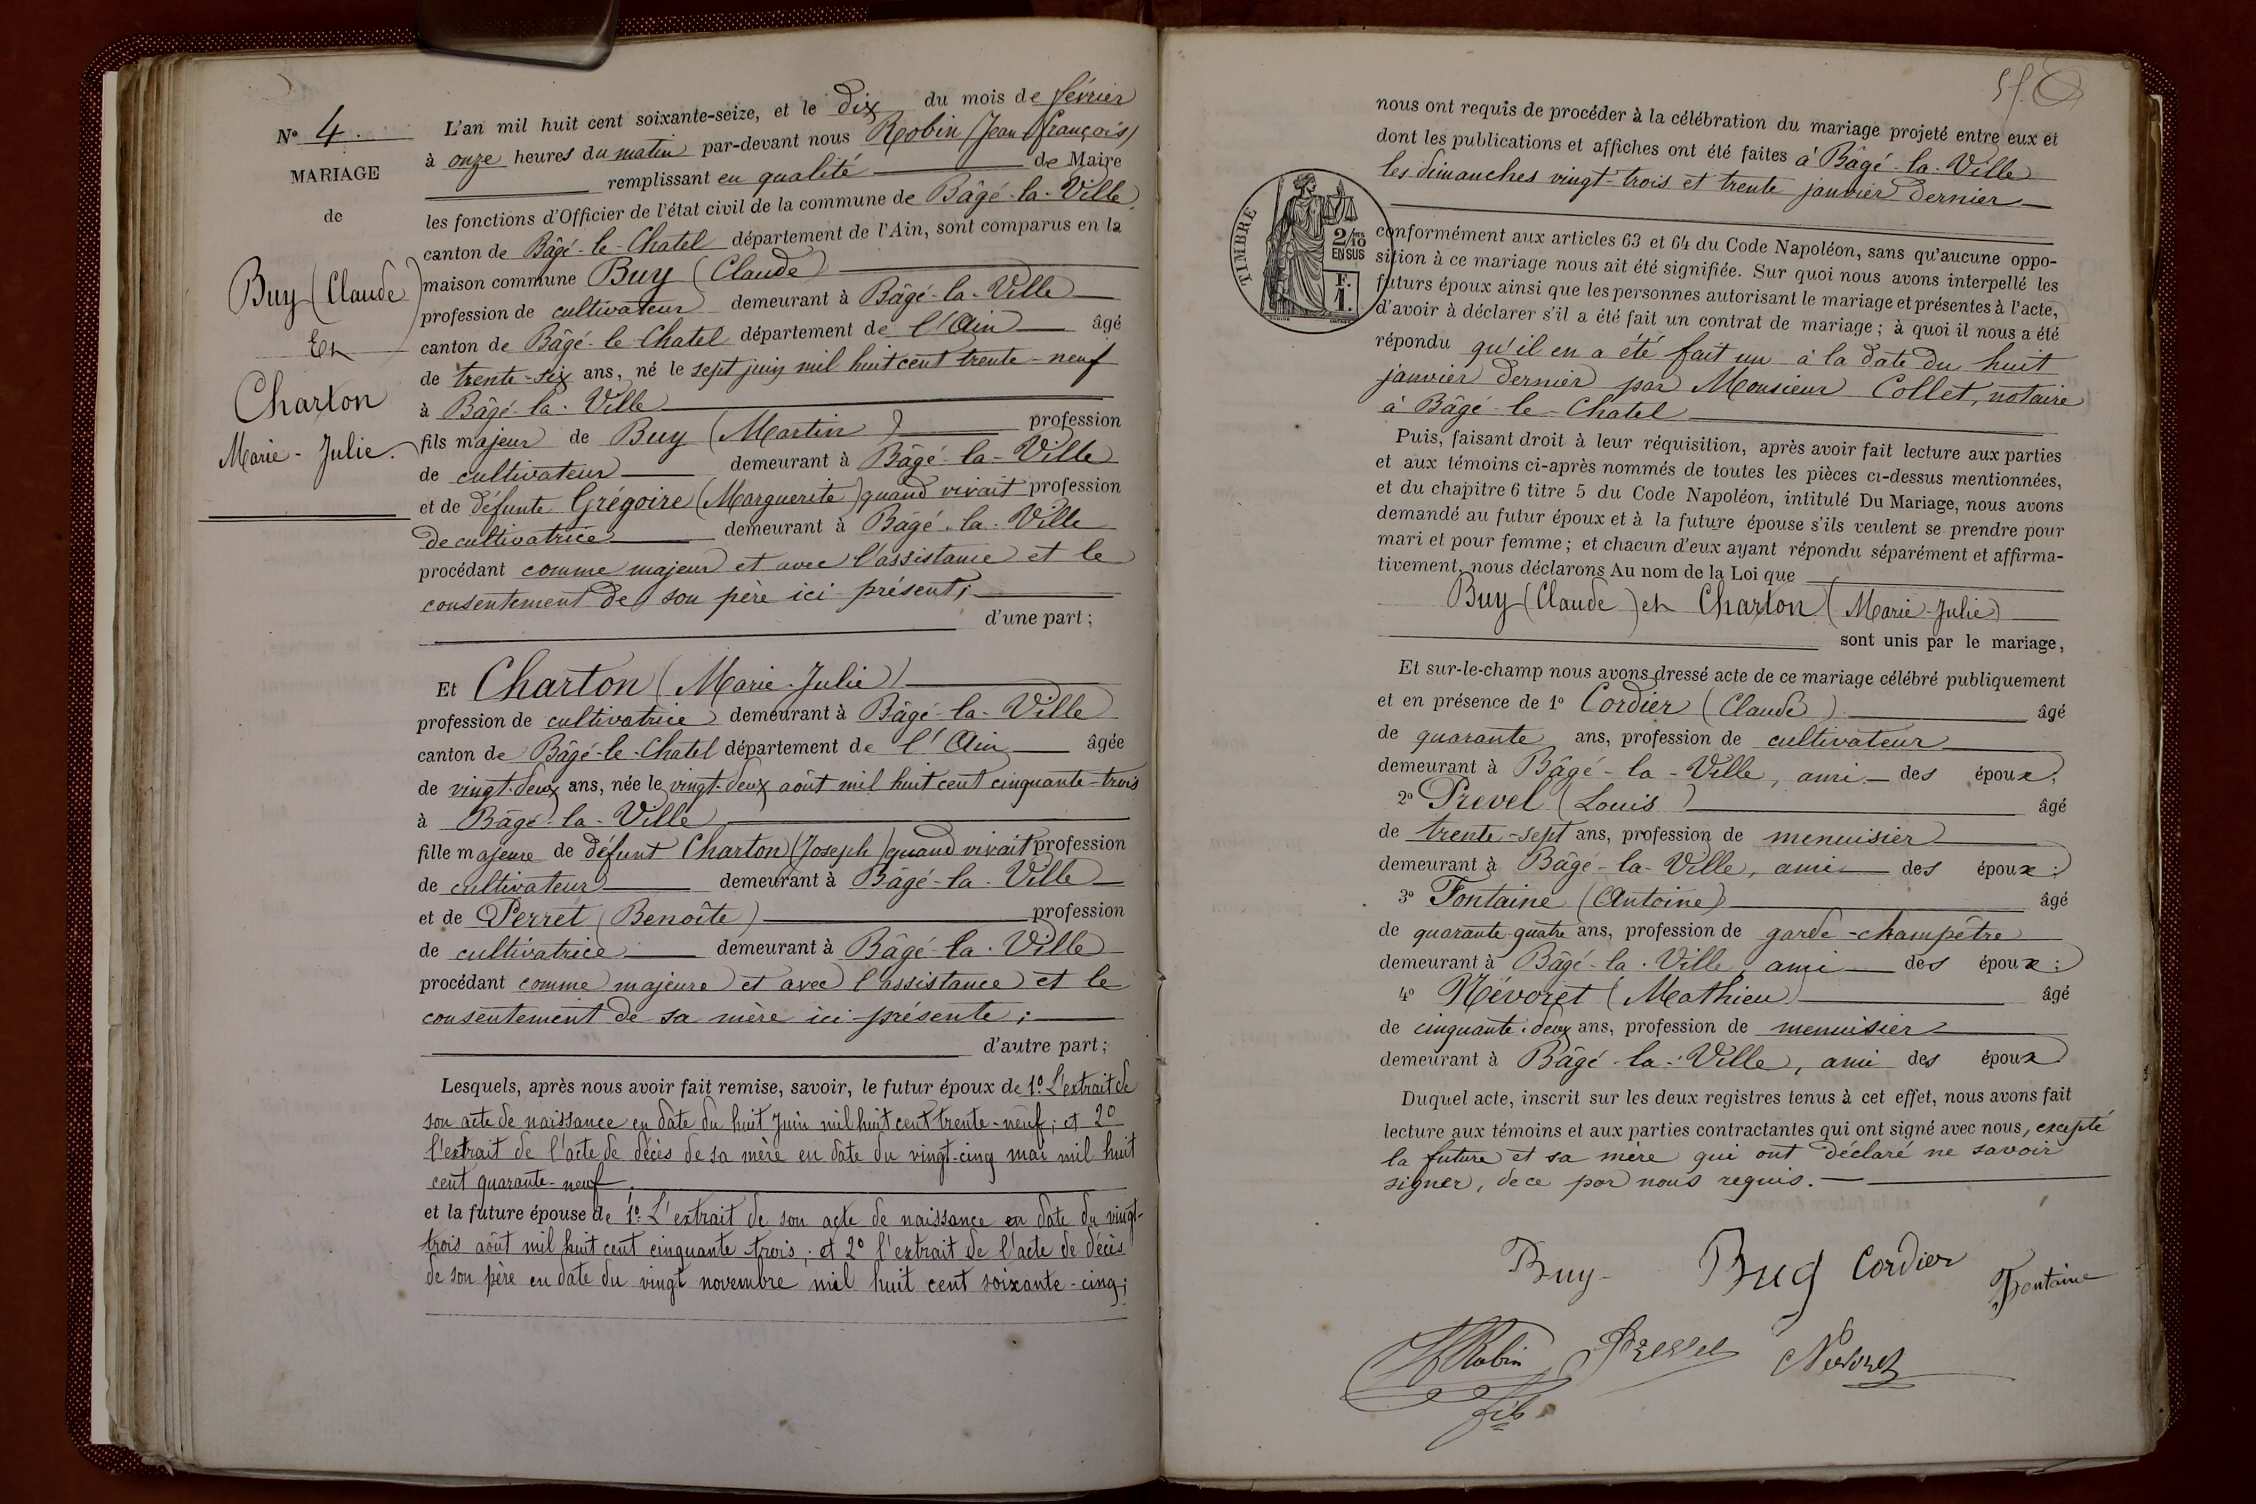 N° 4.
MARIAGE
de
Buy (Claude)
Et
Charton
Marie-Julie.
L'an mil huit cent soixante-seize, et le dix du mois de février
à onze heures du matin par-devant nous Robin (Jean François)
remplissant en qualité de Maire
les fonctions d'Officier de l'état civil de la commune de Bâgé-la-Ville,
canton de Bâgé-le-Chatel département de l'Ain, sont comparus en la
maison commune Buy (Claude)
profession de cultivateur demeurant à Bâgé-la-Ville
canton de Bâgé-le-Chatel département de l'Ain âgé
de trente-six ans, né le sept juin mil huit cent trente-neuf
à Bâgé-la-Ville
fils majeur de Buy (Martin) profession
de cultivateur demeurant à Bâgé-la-Ville
et de défunte Grégoire (Marguerite) quand vivait profession
de cultivatrice demeurant à Bâgé-la-Ville
procédant comme majeur et avec l'assistance et le
consentement de son père ici présent;
d'une part;
Et Charton (Marie-Julie)
profession de cultivatrice demeurant à Bâgé-la-Ville
canton de Bâgé-le-Chatel département de l'Ain âgée
de vingt-deux ans, née le vingt-deux août mil huit cent cinquante-trois
à Bâgé-la-Ville
fille majeure de défunt Charton (Joseph) quand vivait profession
de cultivateur demeurant à Bâgé-la-Ville
et de Perret (Benoîte) profession
de cultivatrice demeurant à Bâgé-la-Ville
procédant comme majeure et avec l'assistance et le
consentement de sa mère ici présente;
d'autre part;
Lesquels, après nous avoir fait remise, savoir, le futur époux de 1° L'extrait de
son acte de naissance en date du huit Juin mil huit cent trente-neuf; et 2°
l'extrait de l'acte de décès de sa mère en date du vingt-cinq mai mil huit
cent quarante-neuf.
et la future épouse de 1° L'extrait de son acte de naissance en date du vingt-
trois août mil huit cent cinquante trois; et 2° l'extrait de l'acte de décès
de son père en date du vingt novembre mil huit cent soixante-cinq;
nous ont requis de procéder à la célébration du mariage projeté entre eux et
dont les publications et affiches ont été faites à Bâgé-la-Ville
les dimanches vingt-trois et trente janvier dernier
TIMBRE
2/10 EN SUS
F. 1.
conformément aux articles 63 et 64 du Code Napoléon, sans qu'aucune oppo-
sition à ce mariage nous ait été signifiée. Sur quoi nous avons interpellé les
futurs époux ainsi que les personnes autorisant le mariage et présentes à l'acte,
d'avoir à déclarer s'il a été fait un contrat de mariage; à quoi il nous a été
répondu qu'il en a été fait un à la date du huit
janvier dernier par Monsieur Collet, notaire
à Bâgé-le-Chatel
Puis, faisant droit à leur réquisition, après avoir fait lecture aux parties
et aux témoins ci-après nommés de toutes les pièces ci-dessus mentionnées,
et du chapitre 6 titre 5 du Code Napoléon, intitulé Du Mariage, nous avons
demandé au futur époux et à la future épouse s'ils veulent se prendre pour
mari et pour femme; et chacun d'eux ayant répondu séparément et affirma-
tivement, nous déclarons Au nom de la Loi que
Buy (Claude) et Charton (Marie-Julie)
sont unis par le mariage,
Et sur-le-champ nous avons dressé acte de ce mariage célébré publiquement
et en présence de 1° Cordier (Claude) âgé
de quarante ans, profession de cultivateur
demeurant à Bâgé-la-Ville, ami des époux;
2° Prevel (Louis) âgé
de trente-sept ans, profession de menuisier
demeurant à Bâgé-la-Ville, ami des époux;
3° Fontaine (Antoine) âgé
de quarante-quatre ans, profession de garde-champêtre
demeurant à Bâgé-la-Ville, ami des époux;
4° Névoret (Mathieu) âgé
de cinquante-deux ans, profession de menuisier
demeurant à Bâgé-la-Ville, ami des époux
Duquel acte, inscrit sur les deux registres tenus à cet effet, nous avons fait
lecture aux témoins et aux parties contractantes qui ont signé avec nous, excepté
la future et sa mère qui ont déclaré ne savoir
signer, de ce par nous requis.
Buy Buy Cordier Fontaine
Robin Nevoret
fils